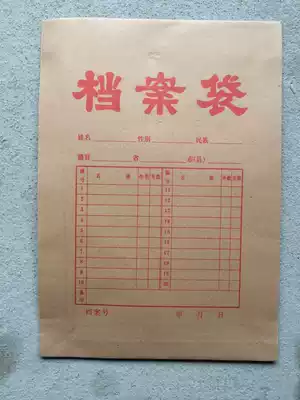 档案袋
姓名 性别 民族
籍贯 省 市(县)
编号 名称 份数 页数 编号 名称 份数 页数
1 11
2 12
3 13
4 14
5 15
6 16
7 17
8 18
9 19
10 20
备注
档案号 年 月 日